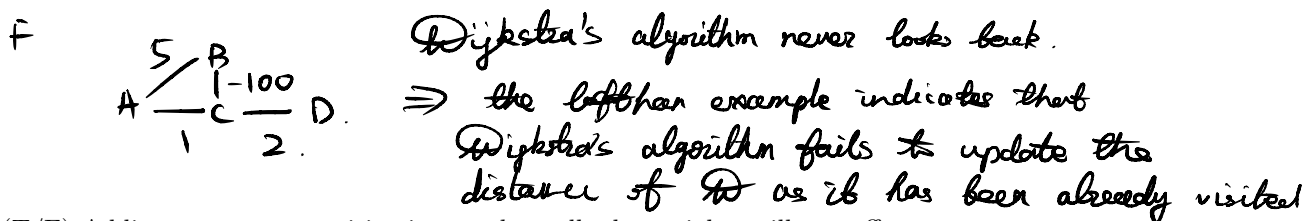 F
Dijkstra's algorithm never looks back.
5 B
-100
A C D.
1 2.
⇒ the lefthan example indicates that
Dijkstra's algorithm fails to update the
distance of D as it has been already visited